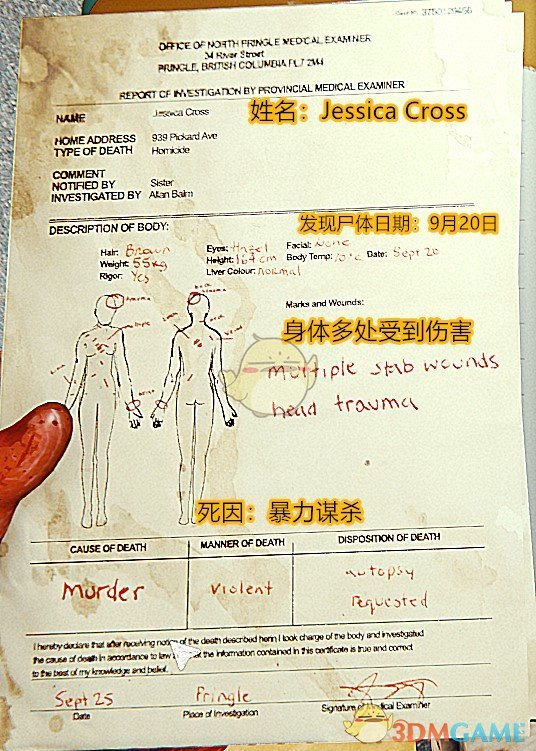 Case No. 3750129456
OFFICE OF NORTH PRINGLE MEDICAL EXAMINER
34 River Street
PRINGLE, BRITISH COLUMBIA
REPORT OF INVESTIGATION BY PROVINCIAL MEDICAL EXAMINER
NAME Jessica Cross 姓名：Jessica Cross
HOME ADDRESS 939 Pickard Ave
TYPE OF DEATH Homicide
COMMENT
NOTIFIED BY Sister
INVESTIGATED BY Allan Balm
发现尸体日期：9月20日
DESCRIPTION OF BODY:
Hair: Brown Eyes: Hazel Facial: None
Weight: 55kg Height: 167cm Body Temp: 10°c Date: Sept 20
Rigor: Yes Liver Colour: normal
Marks and Wounds:
身体多处受到伤害
multiple stab wounds
head trauma
死因：暴力谋杀
CAUSE OF DEATH MANNER OF DEATH DISPOSITION OF DEATH
murder violent autopsy
requested
I hereby declare that after receiving notice of the death described herin I took charge of the body and investigated
the cause of death in accordance to law the information contained in this certificate is true and correct
to the best of my knowledge and belief.
Sept 25 Pringle
Date Place of Investigation Signature of Medical Examiner
3DMGAME